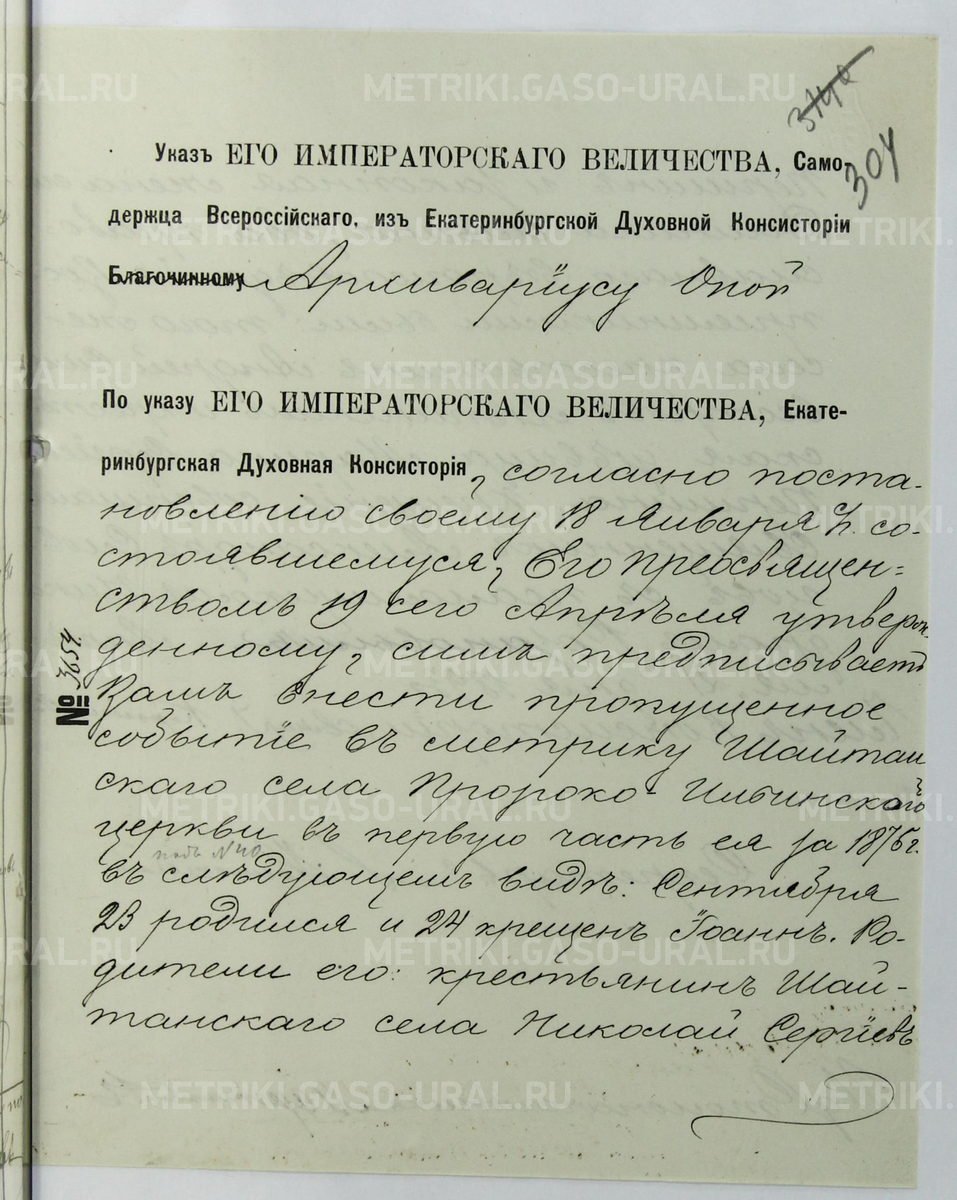 344
304
Указъ ЕГО ИМПЕРАТОРСКАГО ВЕЛИЧЕСТВА, Само-
держца Всероссійскаго, изъ Екатеринбургской Духовной Консисторіи
Благочинному Архиваріусу Оной
По указу ЕГО ИМПЕРАТОРСКАГО ВЕЛИЧЕСТВА, Екате-
ринбургская Духовная Консисторія, согласно поста-
новленію своему 18 Января с. г. со-
стоявшемуся, Его Преосвящен=
ствомъ 19 сего Апрѣля утверж-
денному, симъ предписываетъ
Вамъ внести пропущенное
событіе въ метрику Шайтан
скаго села Пророко-Ильинской
церкви въ первую часть ея за 1876 г.
подъ № 40
въ слѣдующемъ видѣ: Сентября
23 родился и 24 крещенъ Іоаннъ. Ро-
дители его: крестьянинъ Шай-
танскаго села Николай Сергіевъ
№ 3654.
METRIKI.GASO-URAL.RU